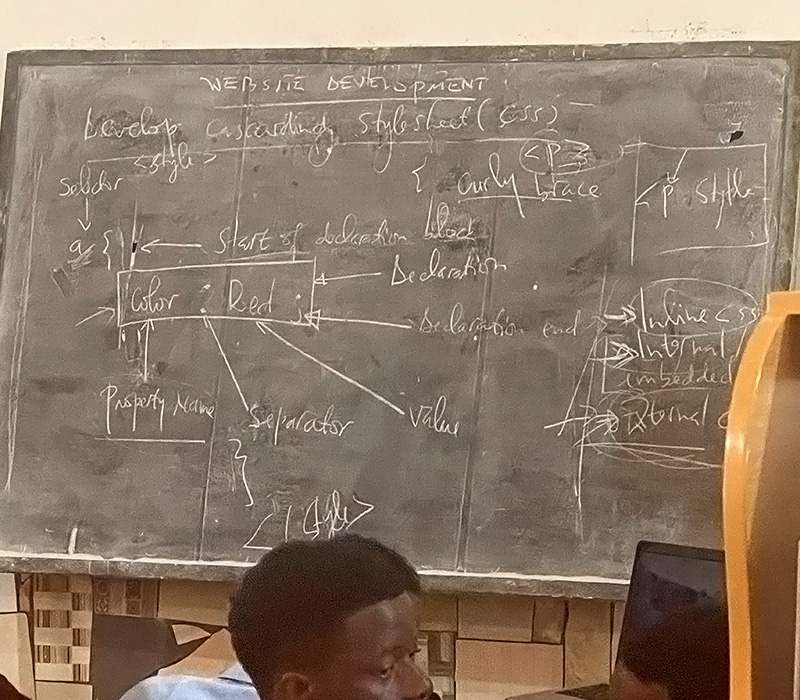 WEBSITE DEVELOPMENT
Develop cascarding Stylesheet (CSS)
<style>
<P>
Selector
{ Curly brace
< P Style
a {
Start of declaration block
Declaration
Color : Red ;
Declaration end
Inline CSS
Internal
Imbedded
External
Property Name
Separator
Value
}
</Style>